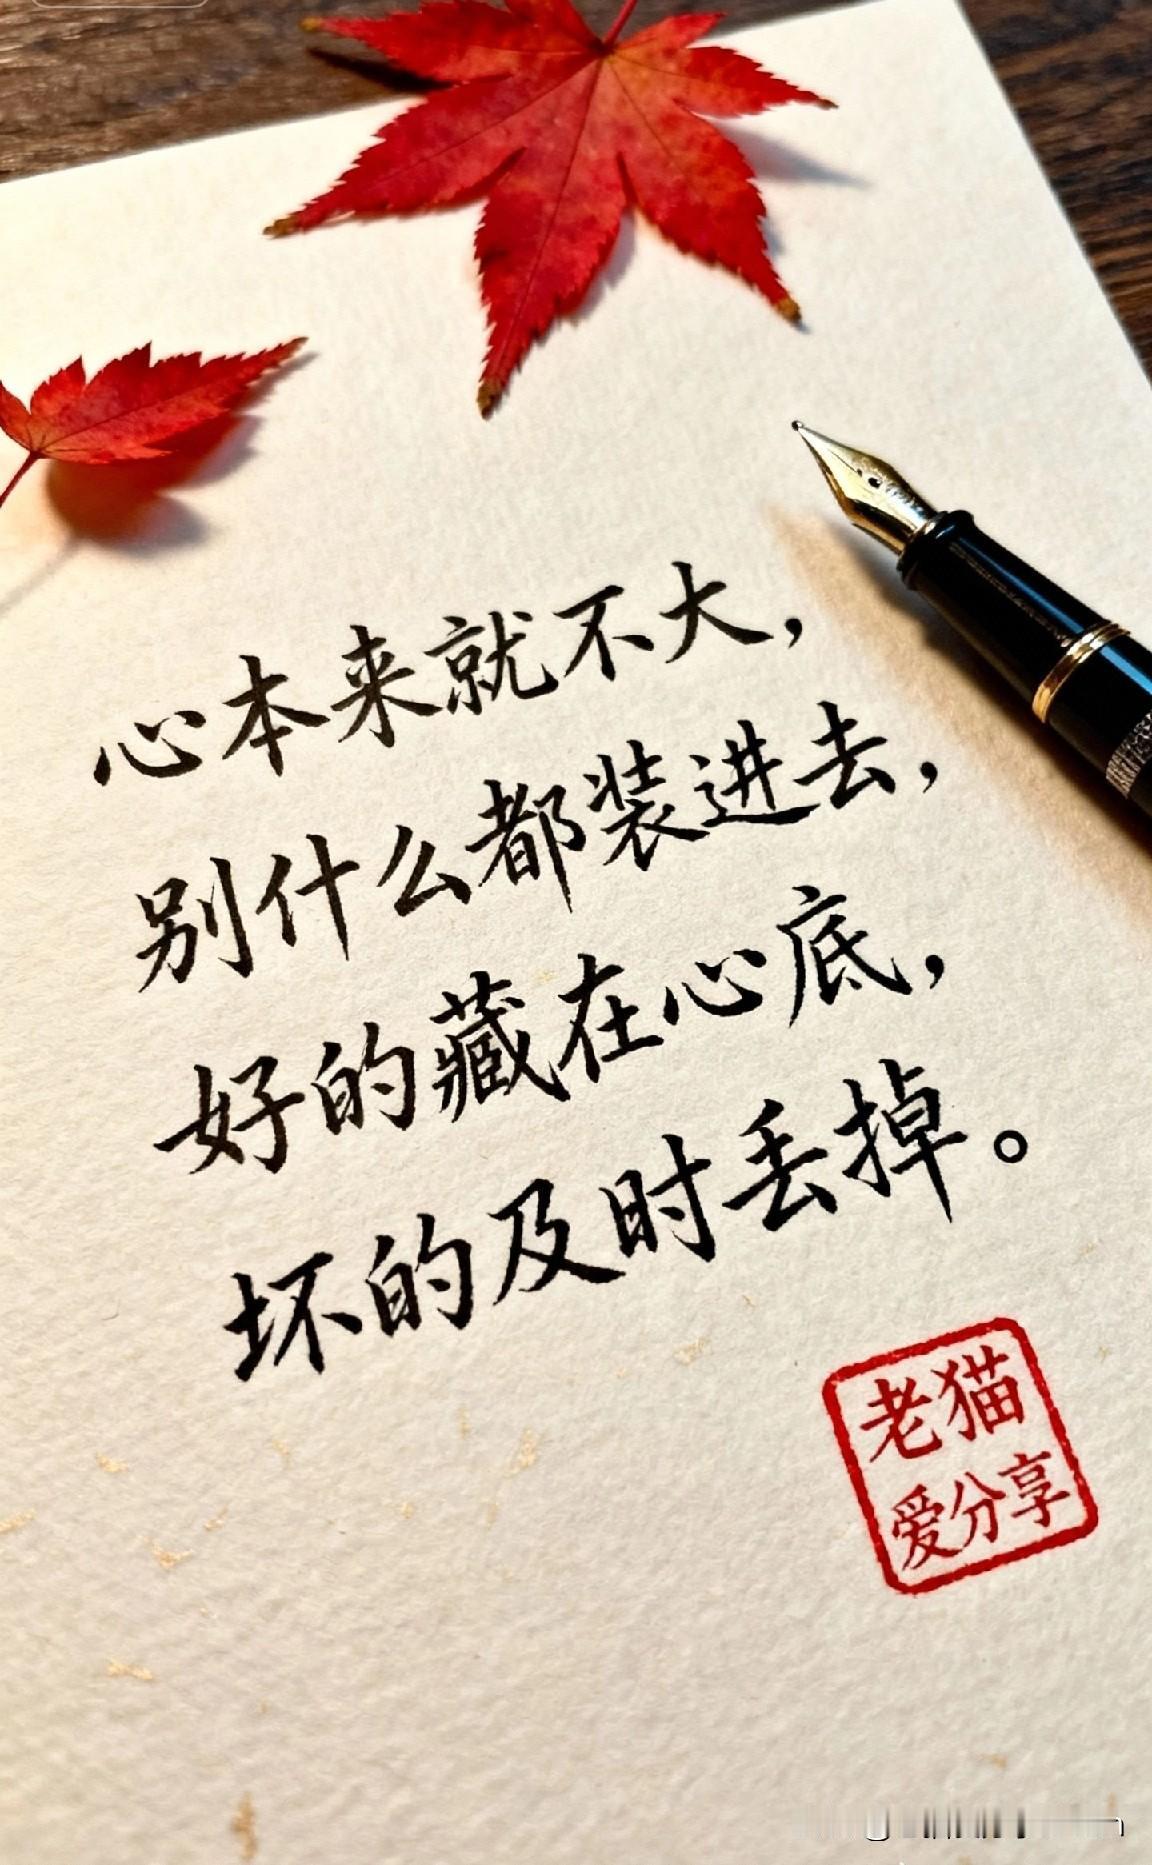 心本来就不大，
别什么都装进去，
好的藏在心底，
坏的及时丢掉。
老猫
爱分享